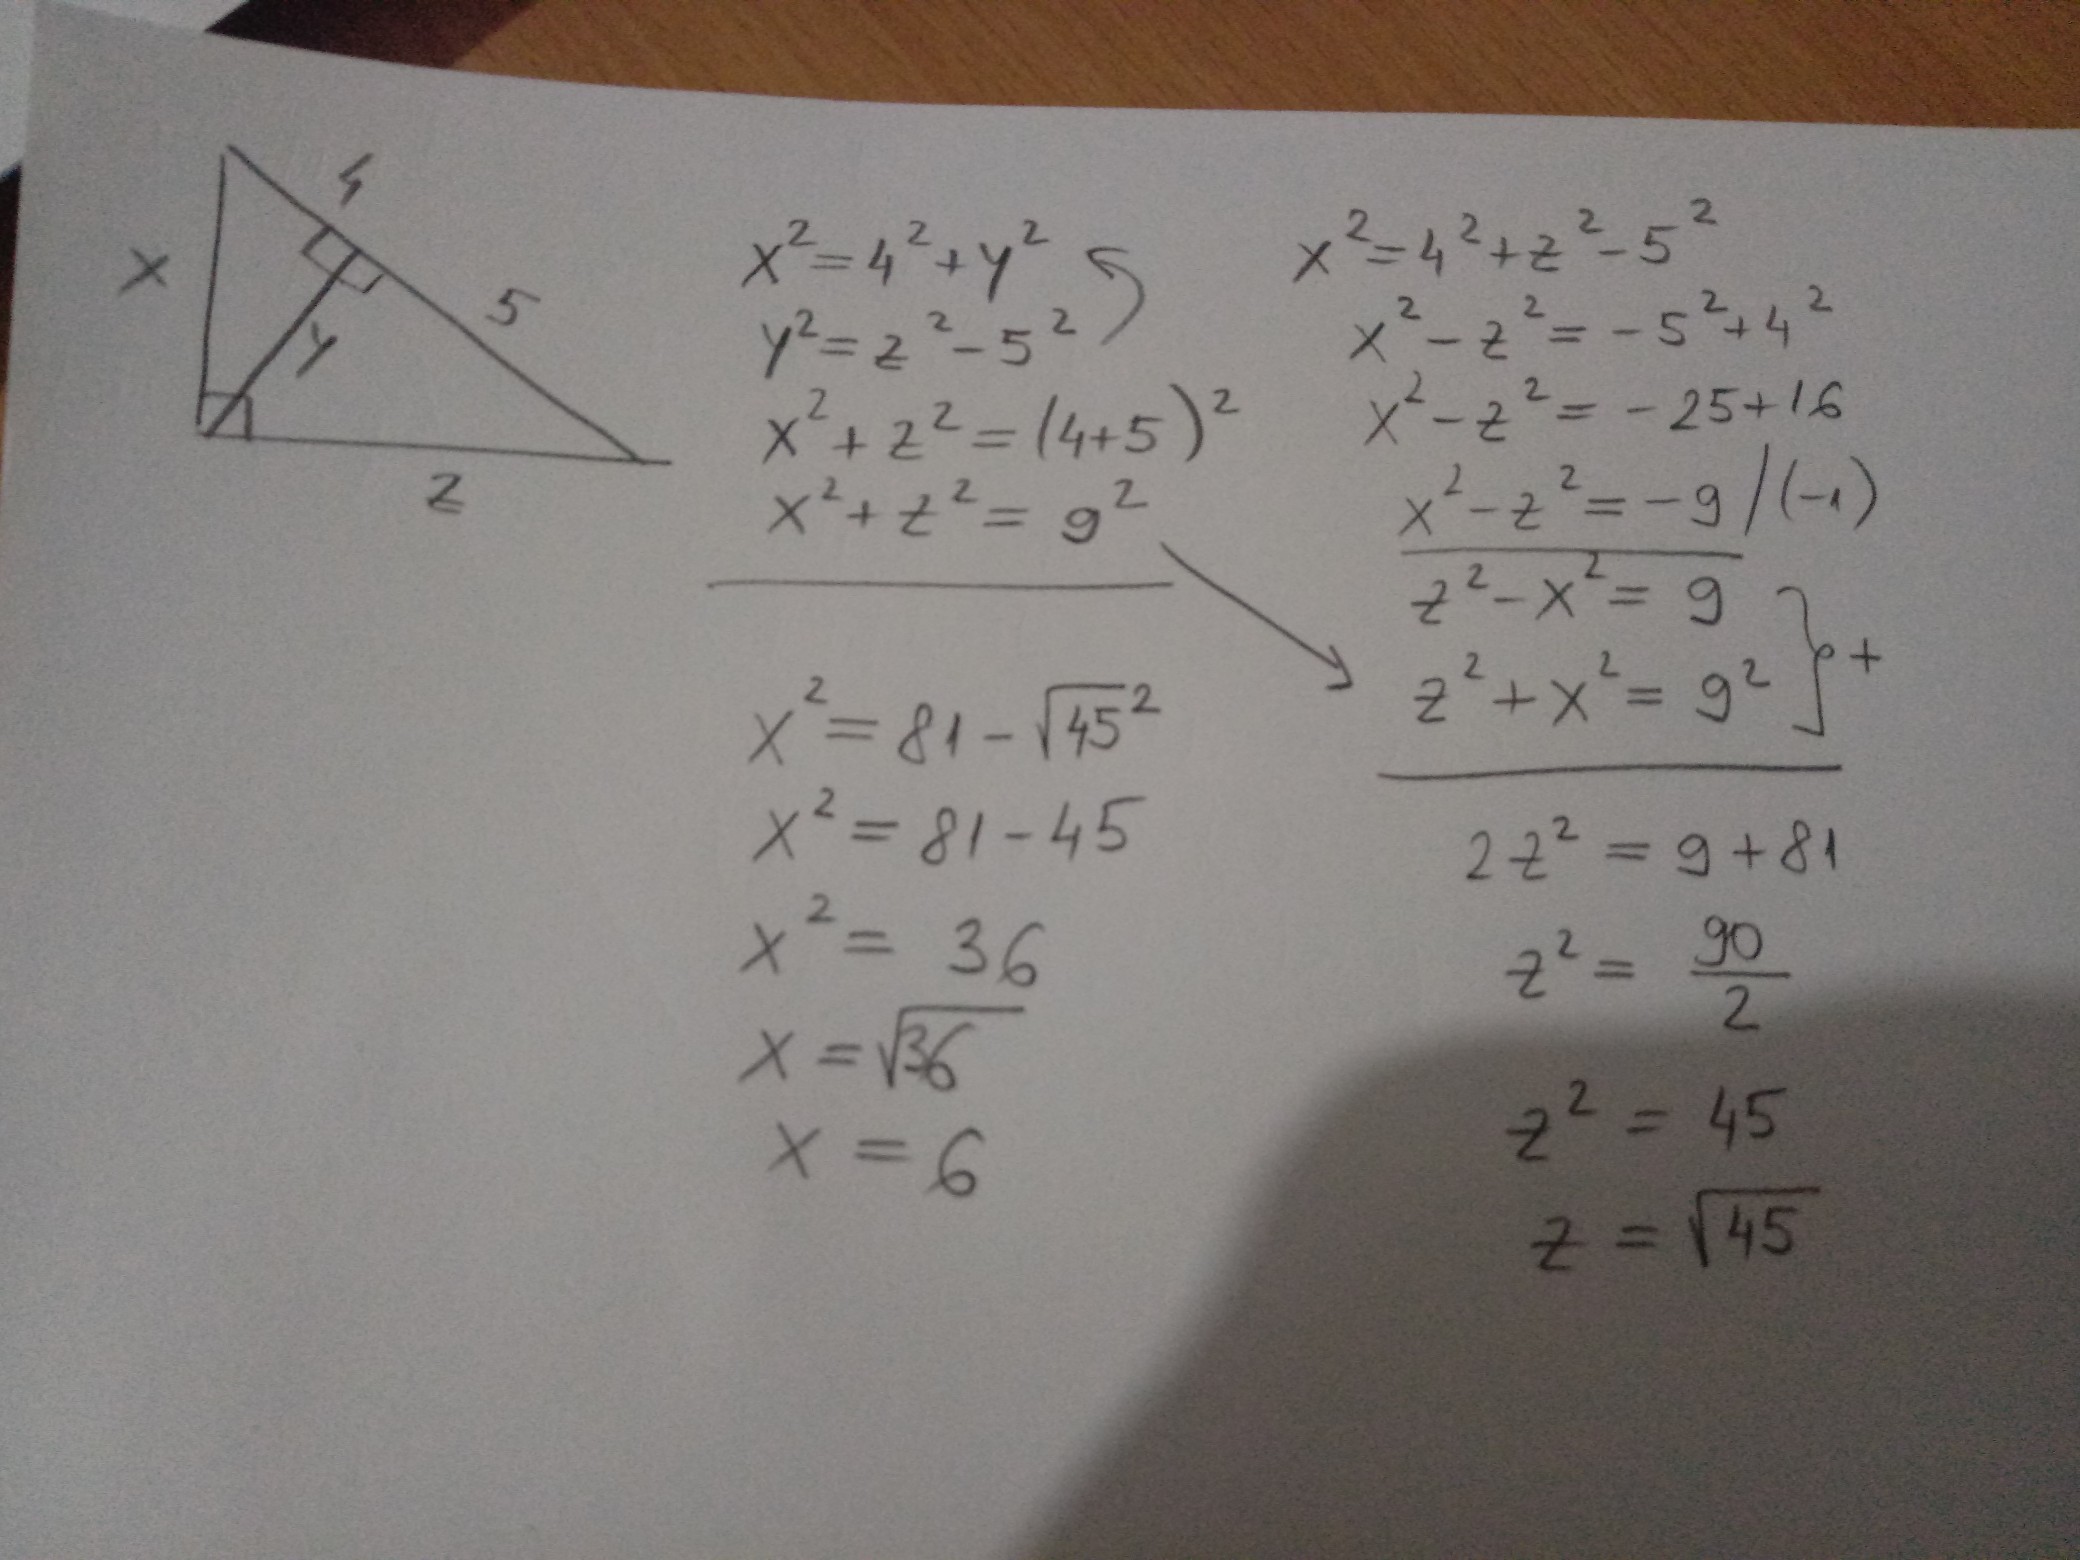 4
x
5
y
z
x² = 4² + y²
y² = z² - 5²
x² + z² = (4+5)²
x² + z² = 9²
x² = 81 - √45²
x² = 81 - 45
x² = 36
x = √36
x = 6
x² = 4² + z² - 5²
x² - z² = -5² + 4²
x² - z² = -25 + 16
x² - z² = -9 /(-1)
z² - x² = 9
z² + x² = 9² } +
2z² = 9 + 81
z² = 90/2
z² = 45
z = √45